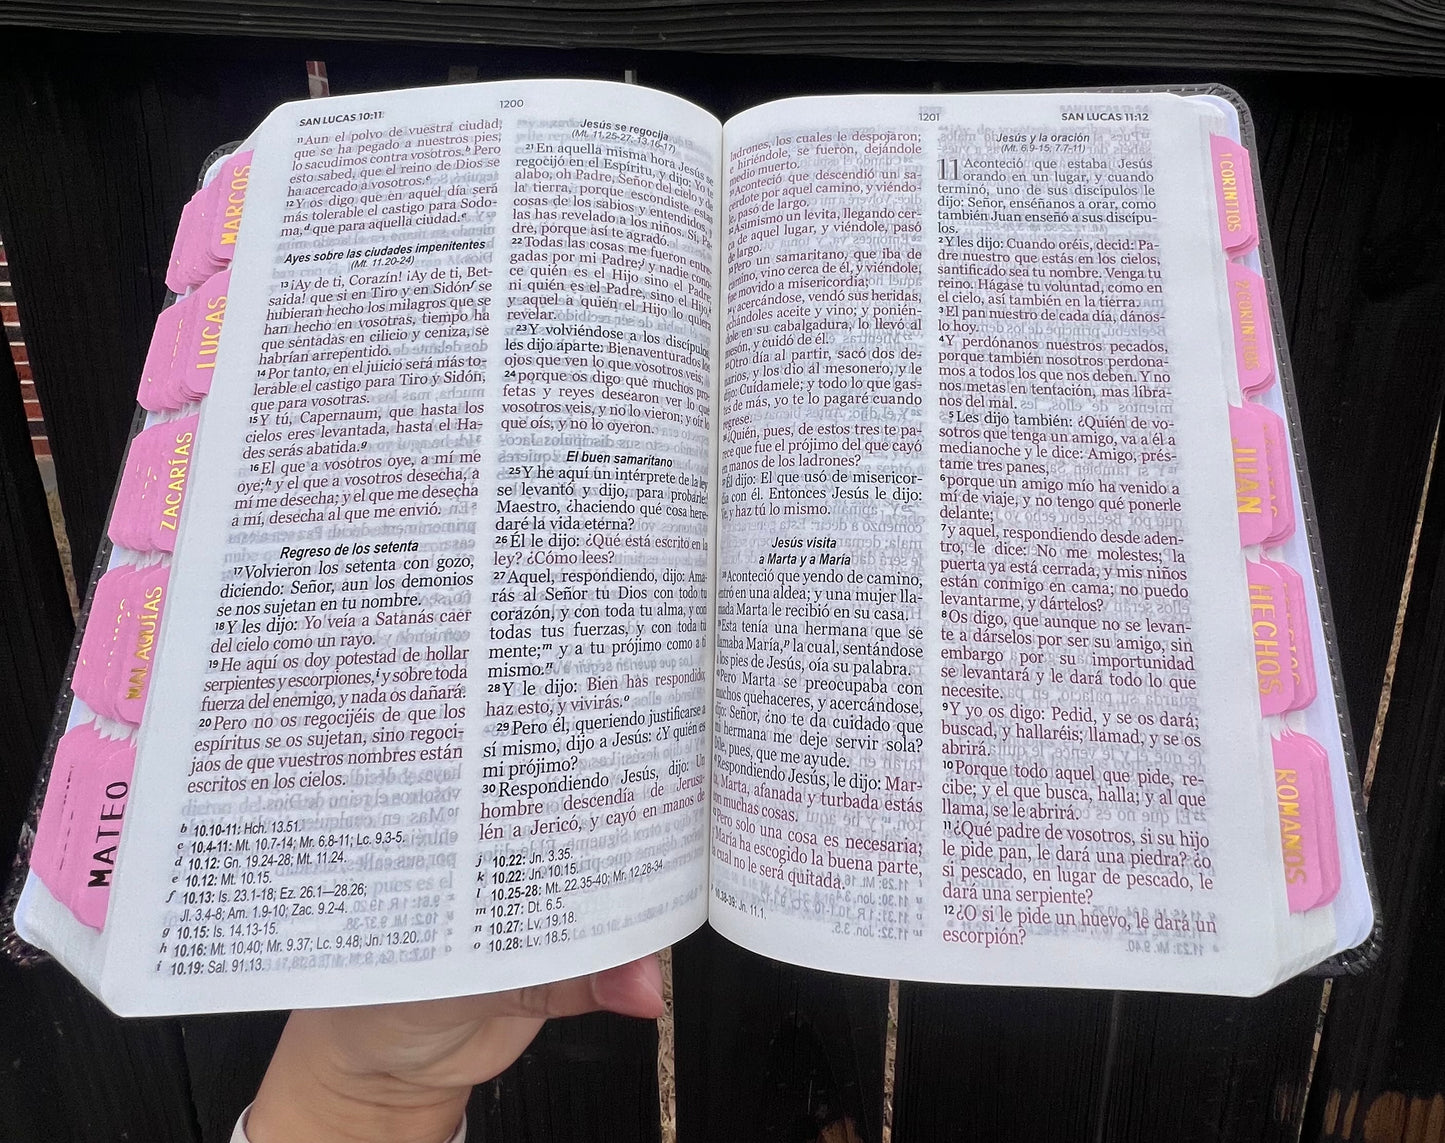 MARCOS
LUCAS
ZACARÍAS
MALAQUÍAS
MATEO
SAN LUCAS 10:11
1200
11Aun el polvo de vuestra ciudad,
que se ha pegado a nuestros pies,
lo sacudimos contra vosotros.b Pero
esto sabed, que el reino de Dios se
ha acercado a vosotros.c
12Y os digo que en aquel día será
más tolerable el castigo para Sodo-
ma,d que para aquella ciudad.e
Ayes sobre las ciudades impenitentes
(Mt. 11.20-24)
13¡Ay de ti, Corazín! ¡Ay de ti, Bet-
saida! que si en Tiro y en Sidónf se
hubieran hecho los milagros que se
han hecho en vosotras, tiempo ha
que sentadas en cilicio y ceniza, se
habrían arrepentido.
14Por tanto, en el juicio será más to-
lerable el castigo para Tiro y Sidón,
que para vosotras.
15Y tú, Capernaum, que hasta los
cielos eres levantada, hasta el Ha-
des serás abatida.g
16El que a vosotros oye, a mí me
oye;h y el que a vosotros desecha, a
mí me desecha; y el que me desecha
a mí, desecha al que me envió.
Regreso de los setenta
17Volvieron los setenta con gozo,
diciendo: Señor, aun los demonios
se nos sujetan en tu nombre.
18Y les dijo: Yo veía a Satanás caer
del cielo como un rayo.
19He aquí os doy potestad de hollar
serpientes y escorpiones,i y sobre toda
fuerza del enemigo, y nada os dañará.
20Pero no os regocijéis de que los
espíritus se os sujetan, sino regoci-
jaos de que vuestros nombres están
escritos en los cielos.
b 10.10-11: Hch. 13.51.
c 10.4-11: Mt. 10.7-14; Mr. 6.8-11; Lc. 9.3-5.
d 10.12: Gn. 19.24-28; Mt. 11.24.
e 10.12: Mt. 10.15.
f 10.13: Is. 23.1-18; Ez. 26.1—28.26;
Jl. 3.4-8; Am. 1.9-10; Zac. 9.2-4.
g 10.15: Is. 14.13-15.
h 10.16: Mt. 10.40; Mr. 9.37; Lc. 9.48; Jn. 13.20.
i 10.19: Sal. 91.13.
Jesús se regocija
(Mt. 11.25-27; 13.16-17)
21En aquella misma hora Jesús se
regocijó en el Espíritu, y dijo: Yo te
alabo, oh Padre, Señor del cielo y de
la tierra, porque escondiste estas
cosas de los sabios y entendidos, y
las has revelado a los niños. Sí, Pa-
dre, porque así te agradó.
22Todas las cosas me fueron entre-
gadas por mi Padre;j y nadie cono-
ce quién es el Hijo sino el Padre;
ni quién es el Padre, sino el Hijo,k
y aquel a quien el Hijo lo quiera
revelar.
23Y volviéndose a los discípulos,
les dijo aparte: Bienaventurados los
ojos que ven lo que vosotros veis;
24porque os digo que muchos pro-
fetas y reyes desearon ver lo que
vosotros veis, y no lo vieron; y oír lo
que oís, y no lo oyeron.
El buen samaritano
25Y he aquí un intérprete de la ley
se levantó y dijo, para probarle:
Maestro, ¿haciendo qué cosa here-
daré la vida eterna?
26Él le dijo: ¿Qué está escrito en la
ley? ¿Cómo lees?
27Aquel, respondiendo, dijo: Ama-
rás al Señor tu Dios con todo tu
corazón, y con toda tu alma, y con
todas tus fuerzas, y con toda tu
mente;m y a tu prójimo como a ti
mismo.n
28Y le dijo: Bien has respondido;
haz esto, y vivirás.o
29Pero él, queriendo justificarse a
sí mismo, dijo a Jesús: ¿Y quién es
mi prójimo?
30Respondiendo Jesús, dijo: Un
hombre descendía de Jerusa-
lén a Jericó, y cayó en manos de
j 10.22: Jn. 3.35.
k 10.22: Jn. 10.15.
l 10.25-28: Mt. 22.35-40; Mr. 12.28-34.
m 10.27: Dt. 6.5.
n 10.27: Lv. 19.18.
o 10.28: Lv. 18.5.
1201
SAN LUCAS 11:12
ladrones, los cuales le despojaron;
e hiriéndole, se fueron, dejándole
medio muerto.
Aconteció que descendió un sa-
cerdote por aquel camino, y viéndo-
le, pasó de largo.
Asimismo un levita, llegando cer-
ca de aquel lugar, y viéndole, pasó
de largo.
Pero un samaritano, que iba de
camino, vino cerca de él, y viéndole,
fue movido a misericordia;
y acercándose, vendó sus heridas,
echándoles aceite y vino; y ponién-
dole en su cabalgadura, lo llevó al
mesón, y cuidó de él.
Otro día al partir, sacó dos de-
narios, y los dio al mesonero, y le
dijo: Cuídamele; y todo lo que gas-
tes de más, yo te lo pagaré cuando
regrese.
¿Quién, pues, de estos tres te pa-
rece que fue el prójimo del que cayó
en manos de los ladrones?
Él dijo: El que usó de misericor-
dia con él. Entonces Jesús le dijo:
Ve, y haz tú lo mismo.
Jesús visita
a Marta y a María
Aconteció que yendo de camino,
entró en una aldea; y una mujer lla-
mada Marta le recibió en su casa.
Esta tenía una hermana que se
llamaba María,p la cual, sentándose
a los pies de Jesús, oía su palabra.
Pero Marta se preocupaba con
muchos quehaceres, y acercándose,
dijo: Señor, ¿no te da cuidado que
mi hermana me deje servir sola?
Dile, pues, que me ayude.
Respondiendo Jesús, le dijo: Mar-
ta, Marta, afanada y turbada estás
con muchas cosas.
Pero solo una cosa es necesaria;
y María ha escogido la buena parte,
la cual no le será quitada.
p 10.38-39: Jn. 11.1.
Jesús y la oración
(Mt. 6.9-15; 7.7-11)
11 Aconteció que estaba Jesús
orando en un lugar, y cuando
terminó, uno de sus discípulos le
dijo: Señor, enséñanos a orar, como
también Juan enseñó a sus discípu-
los.
2Y les dijo: Cuando oréis, decid: Pa-
dre nuestro que estás en los cielos,
santificado sea tu nombre. Venga tu
reino. Hágase tu voluntad, como en
el cielo, así también en la tierra.
3El pan nuestro de cada día, dános-
lo hoy.
4Y perdónanos nuestros pecados,
porque también nosotros perdona-
mos a todos los que nos deben. Y no
nos metas en tentación, mas líbra-
nos del mal.
5Les dijo también: ¿Quién de vo-
sotros que tenga un amigo, va a él a
medianoche y le dice: Amigo, prés-
tame tres panes,
6porque un amigo mío ha venido a
mí de viaje, y no tengo qué ponerle
delante;
7y aquel, respondiendo desde aden-
tro, le dice: No me molestes; la
puerta ya está cerrada, y mis niños
están conmigo en cama; no puedo
levantarme, y dártelos?
8Os digo, que aunque no se levan-
te a dárselos por ser su amigo, sin
embargo por su importunidad
se levantará y le dará todo lo que
necesite.
9Y yo os digo: Pedid, y se os dará;
buscad, y hallaréis; llamad, y se os
abrirá.
10Porque todo aquel que pide, re-
cibe; y el que busca, halla; y al que
llama, se le abrirá.
11¿Qué padre de vosotros, si su hijo
le pide pan, le dará una piedra? ¿o
si pescado, en lugar de pescado, le
dará una serpiente?
12¿O si le pide un huevo, le dará un
escorpión?
1 CORINTIOS
2 CORINTIOS
JUAN
HECHOS
ROMANOS